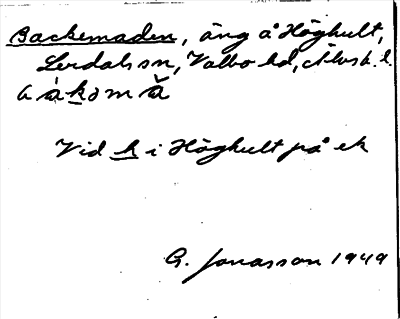 Backemaden, äng å Höghult,
Lerdals sn, Valbo hd, Älvsb. l.
Vid k i Höghult på ek
G. Jonasson 1949